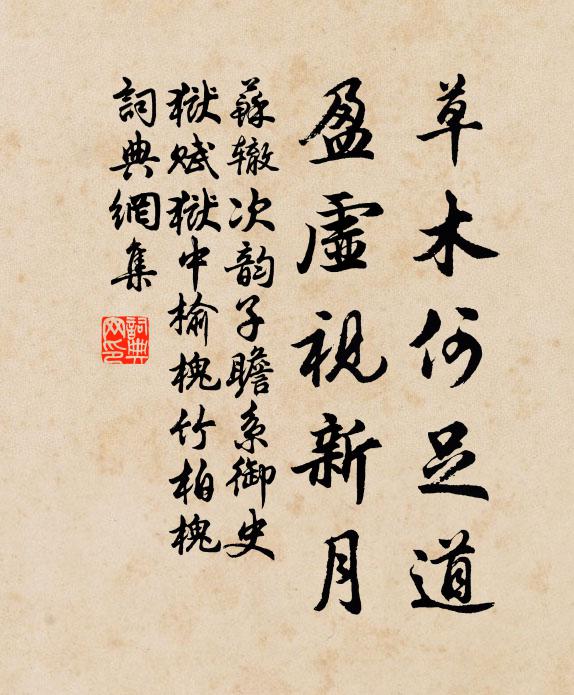 草木何足道
盈虛視新月
蘇辙次韵子瞻系御史
獄赋獄中榆槐竹柏槐
詞典網集
詞典
网印